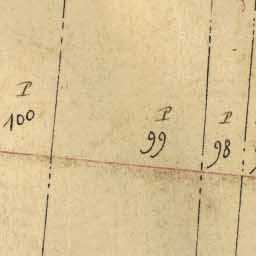 P
100
P
99
P
98